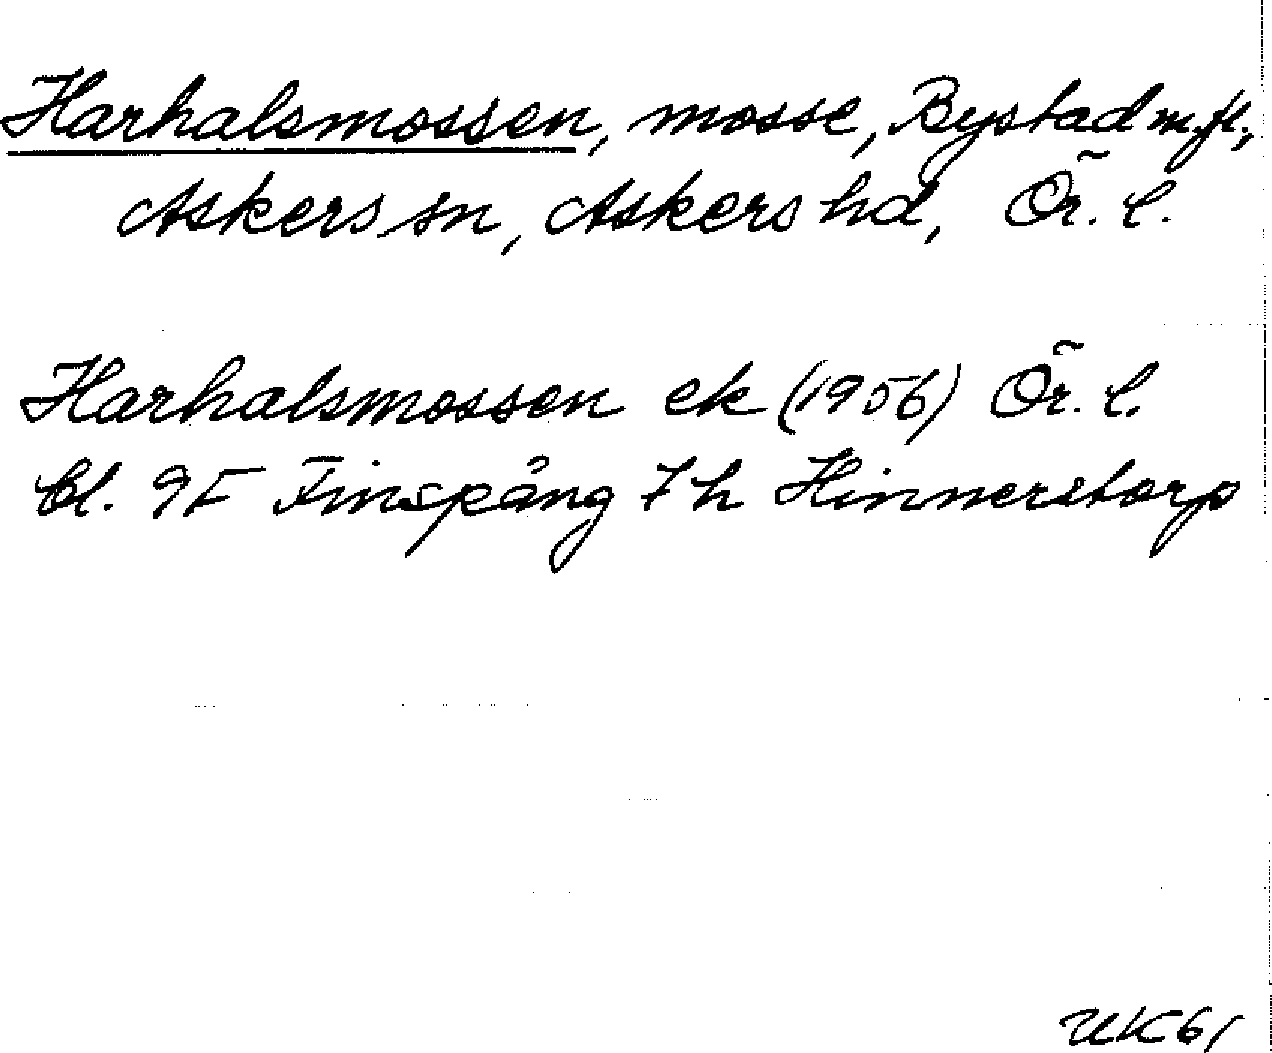 Harhalsmossen, mosse, Bystad m.fl.,
Askers sn, Askers hd, Ör. l.
Harhalsmossen ek (1956) Ör. l.
bl. 9F Finspång 7h Hinnerstorp
UK61